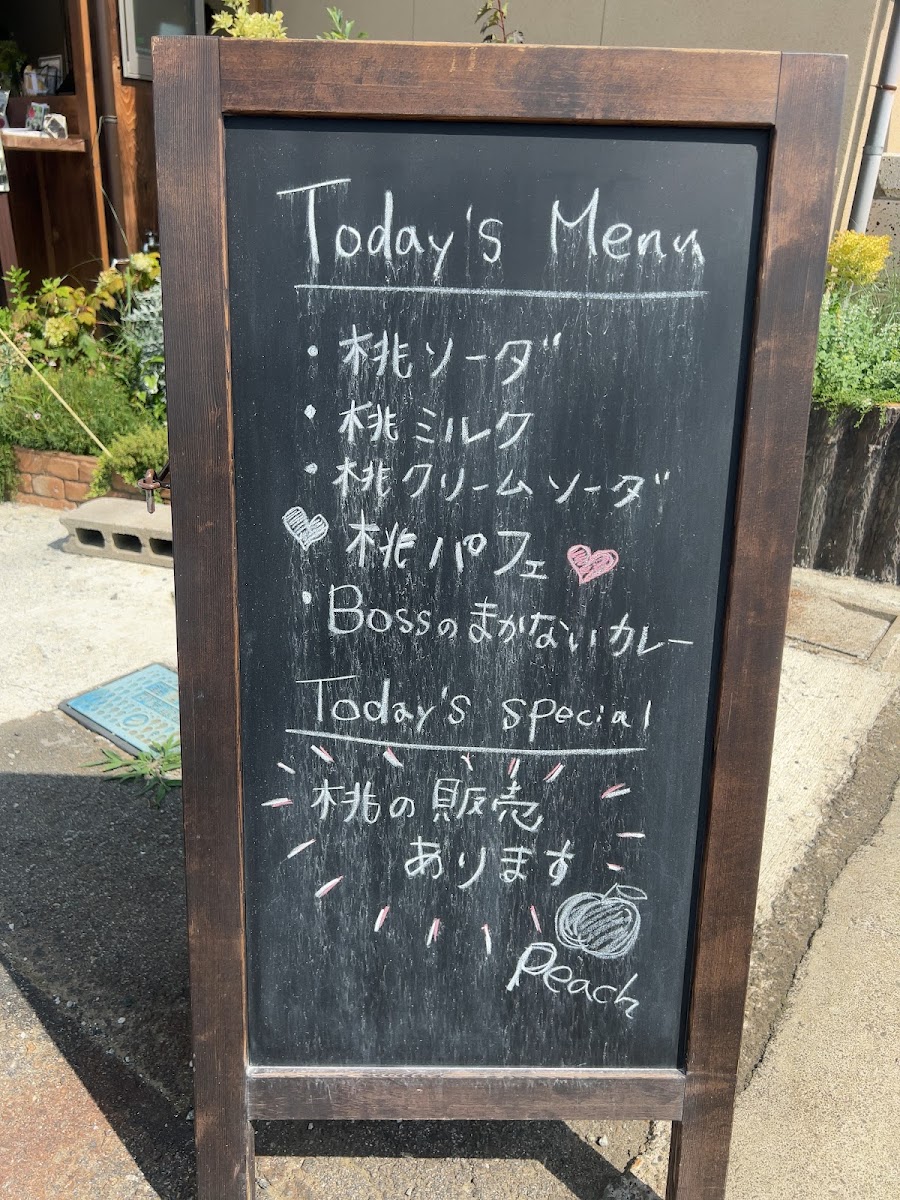 Today's Menu
・桃ソーダ
・桃ミルク
・桃クリームソーダ
♡桃パフェ♡
・Bossのまかないカレー
Today's special
桃の販売
あります
Peach